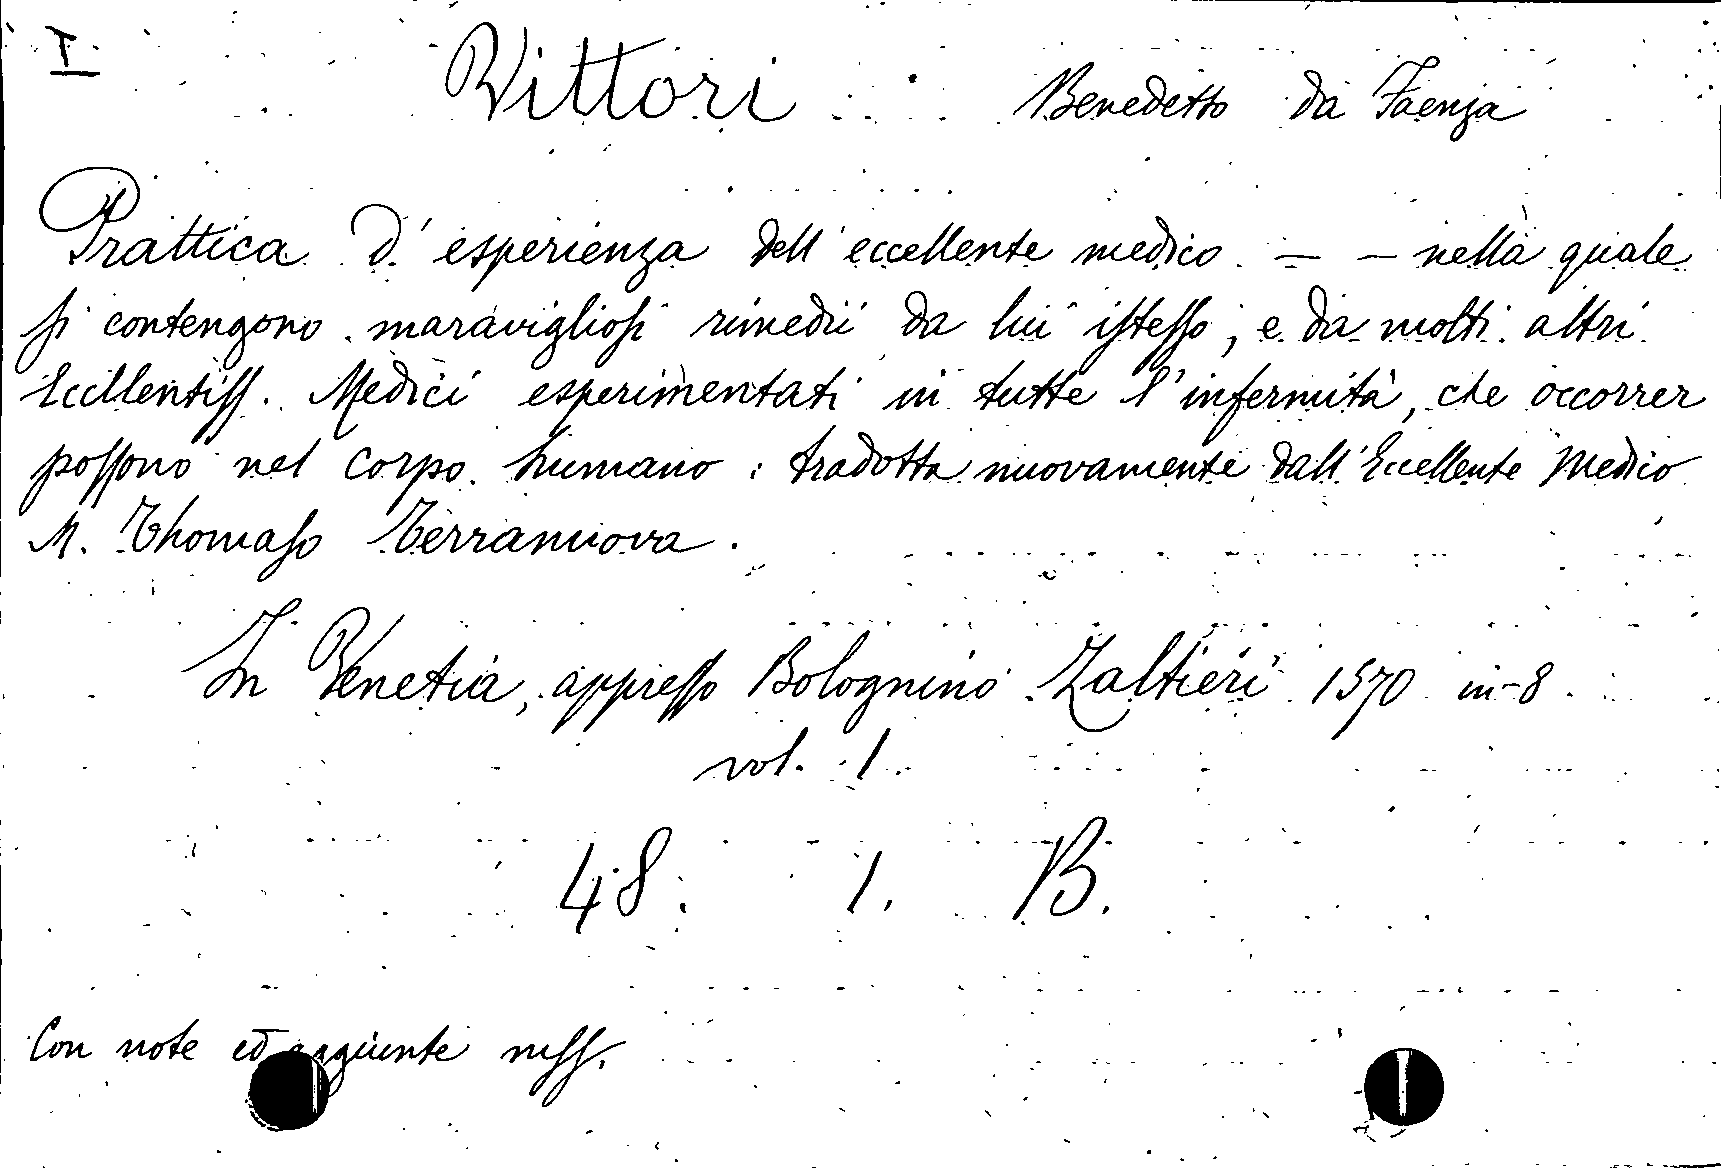 I
Vittori Benedetto da Faenza
Prattica d'esperienza dell'eccellente medico — — nella quale
si contengono maravigliosi rimedii da lui istesso, e da molti altri
Eccllentiss. Medici esperimentati in tutte l'infermità, che occorrer
possono nel corpo humano: tradotta nuovamente dall'Eccellente Medico
M. Thomaso Terranuova.
In Venetia, appresso Bolognino Zaltieri 1570 in-8
vol. 1
48. 1. B.
Con note ed aggiunte mss.